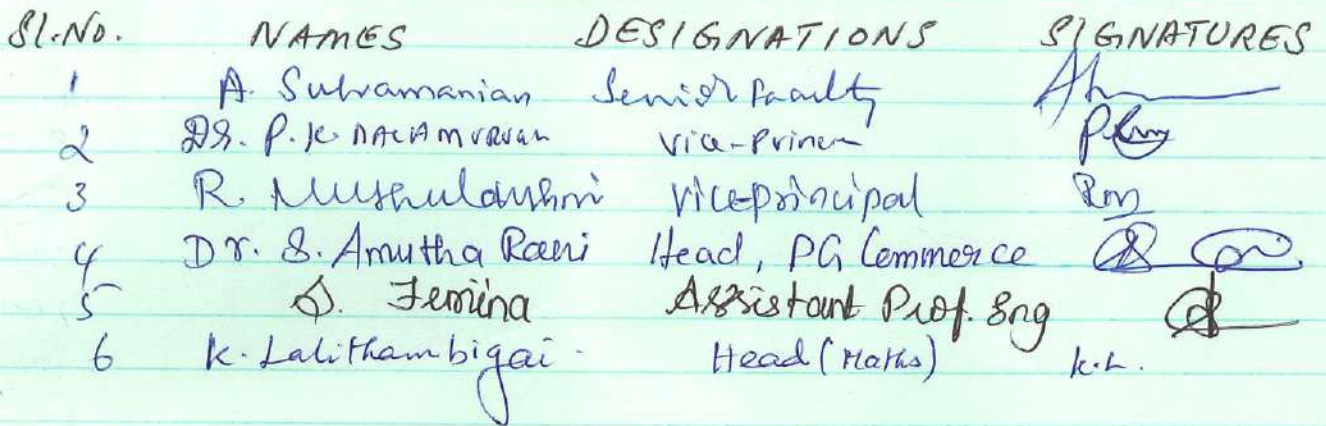 Sl.No. NAMES DESIGNATIONS SIGNATURES
1 A. Subramanian Senior Faculty
2 Dr. P.K. Vice-Princ
3 R. Muthulakshmi Viceprincipal
4 Dr. S. Amutha Rani Head, PG Commerce
5 J. Femina Assistant Prof. Eng
6 K. Lalithambigai. Head (Maths) K.L.